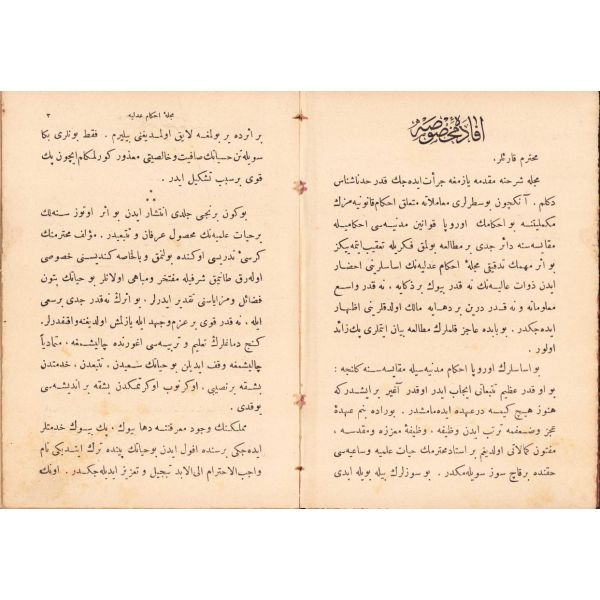 افادهٔ مخصوصه
محترم قارئلر.
مجله شرحنه مقدمه يازمغه جرأت ايده جك قدر حدناشناس
دكلم. آنكچون بو سطرلرى معاملاته متعلق احكام قانونيه مزك
مكمليتنه بو احكامك اوروپا قوانين مدنيه سى احكاميله
مقايسه سنه دائر جدى بر مطالعه بولمق فكريله تعقيب ايتمه ييكز
بو اثر مهمك تدقيقى مجلهٔ احكام عدليه نك اساسلرينى احضار
ايدن ذوات عاليه نك نه قدر بيوك بر ذكايه ، نه قدر واسع
معلوماته و نه قدر درين بر دهايه مالك اولدقلرينى اظهار
ايده جكدر. بو بابده عاجز قلملرك مطالعه بيان ايتملرى پك زائد
اولور .
بو اساسلرك اوروپا احكام مدنيه سيله مقايسه سنه كلنجه :
بو او قدر عظيم تتبعاتى ايجاب ايدر اوقدر آغير بر ايشدر كه
هنوز هيچ كيمسه درعهده ايده مامشدر . بوراده بنم عهدهٔ
عجز وضعفمه ترتب ايدن وظيفه ، وظيفهٔ معززه ومقدسه ،
مفتون كمالاتى اولديغم بر استاد محترمك حيات علميه وساعيه سى
حقنده برقاچ سوز سويلمكدر . بو سوزلرك بيله بويله ابدى
مجلهٔ احكام عدليه
٣
بر اثرده ير بولمغه لايق اولمديغنى بيليرم . فقط بونلرى بكا
سويله تن حسياتك صافيت وخالصيتى معذور كورلمكلم ايچون پك
قوى برسبب تشكيل ايدر .
بوكون برنجى جلدى انتشار ايدن بو اثر اوتوز سنه لك
برحيات علميه نك محصول عرفان و تتبعيدر. مؤلف محترمنك
كرسئ تدريسى اوكنده بولنمق وبالخاصه كنديسنى خصوصى
اوله رق طانيمق شرفيله مفتخر ومباهى اولانلر بو حياتك بتون
فضائل ومزاياسنى تقدير ايدرلر . بو اثرك نه قدر جدى برسعى
ايله ، نه قدر قوى بر عزم وجهد ايله يازلمش اولديغنه واقفدرلر.
كنج دماغلرك تعليم و تربيه سى اغورنده چاليشمغه ، متماديا
چاليشمغه وقف ايديلن بو حياتك سعيدن ، تتبعدن ، خدمتدن
بشقه برنصيبى ، اوكرنوب اوكرتمكدن بشقه بر انديشه سى
يوقدى .
مملكتنك وجود معرفتنه دها بيوك ، پك بيوك خدمتلر
ايده جكى برسنده افول ايدن بوحياتك پيننده ترك ايتديكى نام
واجب الاحترام الى الابد تبجيل و تعزيز ايديله جكدر . اونك